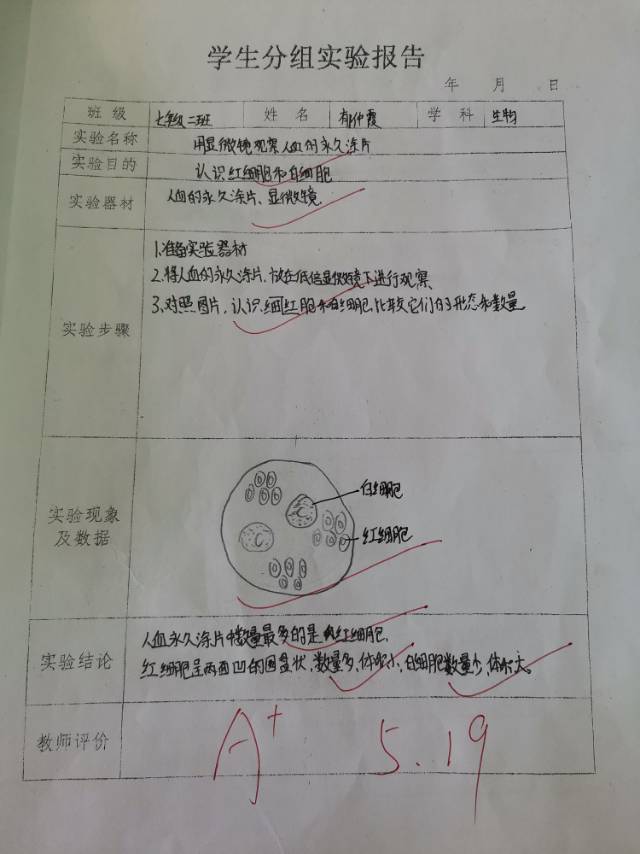 学生分组实验报告
年 月 日
班级 七年级二班 姓名 仲霞 学科 生物
实验名称 用显微镜观察人血的永久涂片
实验目的 认识红细胞和白细胞
实验器材 人血的永久涂片、显微镜
实验步骤
1.准备实验器材
2.将人血的永久涂片,放在低倍显微镜下进行观察
3.对照图片,认识红细胞和白细胞,比较它们的形态和数量
实验现象及数据
白细胞
红细胞
实验结论
人血永久涂片中数量最多的是红细胞,
红细胞是两面凹的圆盘状,数量多,体积小,白细胞数量少,体积大。
教师评价 A+ 5.19